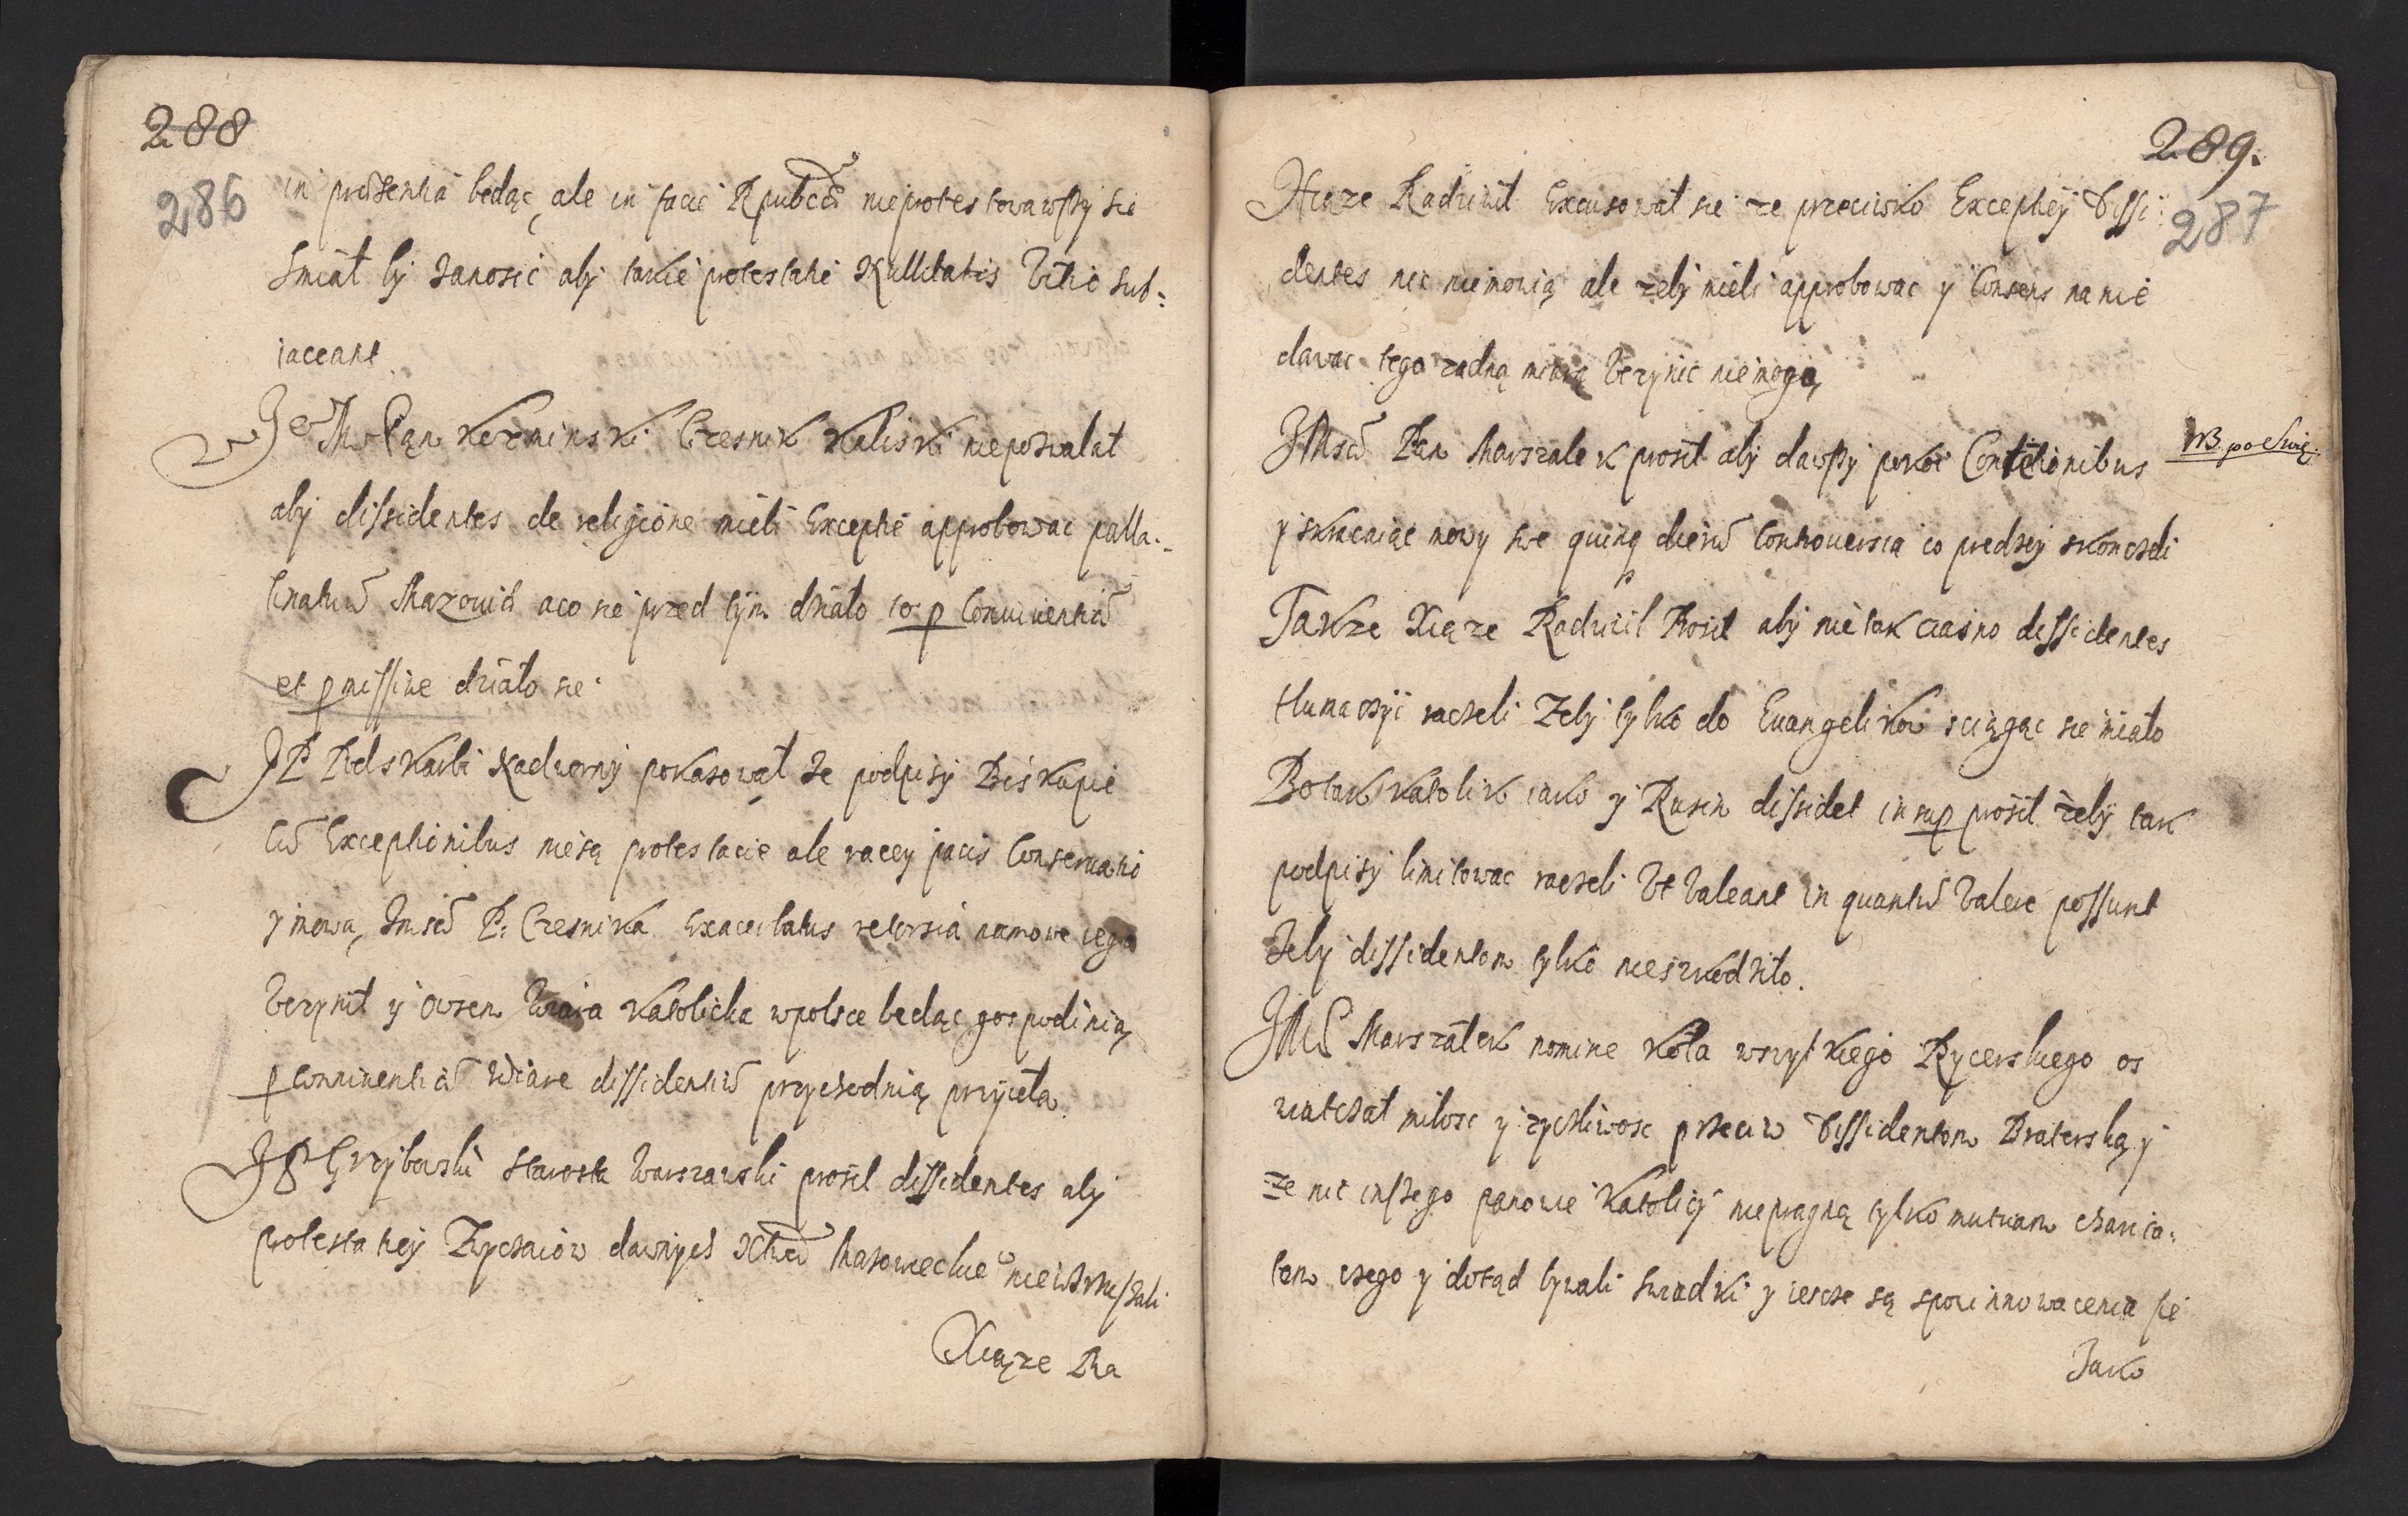 288
286
in praesentia będąc, ale in facie Rpubcae nieprotestowawszy sie
smiał by zanosic aby takie protestatie Nullitatis Vitio sub=
iaceant
Je Mc Pan Kozminski Czesnik Kaliski niepozwalał
aby dissidentes de religione mieli Exceptie approbowac palla=
tinatum Mazovia aco sie przed tym działo to p Conniventiam
et pmissive działo sie.
J P Podskarbi Nadworny pokazował ze podpisy Biskupie
cum Exceptionibus niesą protestacie ale raczey pacis Conservatio
y mową Jmsci P. Czesnika exacerbatus retorsia namowe iego
Vczynił y owszem Wiara Katolicka wpolsce będąc gospodinią
p conniventiam Wiare dissidentium przychodnią przyieła.
J P Grzybowski Starosta Warszawski prosił dissidentes aby
protestatiey Zyczaiow dawnych Xtwa Mazowieckie° niewzruszali
Xiąze Ra
289.
287
Xiąze Radziwił Excusował sie ze przeciwko Exceptiey Dissi=
dentes nic niemowią ale zeby mieli approbowac y Consens na nie
dawac tego zadną miarą Vczynic niemogą
JMsci Pan Marszałek prosił aby dawszy pokoi Contetionibus
NB. po Świę.
y skracaiąc mowy swe quinq dierum Controversia co predzey skonczeli
Takze Xiąze Radziwil Prosił aby nie tak ciasno dissidentes
tlumaczyc raczeli Zeby tylko do Euangelikow sciągac sie miało
Bo tak Katolik iako y Rusin dissidet insup prosił zeby tak
podpisy limitowac raczeli Vt Valeant in quantum Valere possunt
Zeby dissidentom tylko nieszkodziło.
JMc Marszałek nomine Koła wszystkiego Rycerskiego os
wiatczał miłosc y zyczliwosc przeciw Dissidentom Braterską y
ze nic inszego panowie Katolicy niepragną tylko mutuam charita=
tem czego y dotąd bywali swiadki y iescze są spowinnowacenia sie
Jako